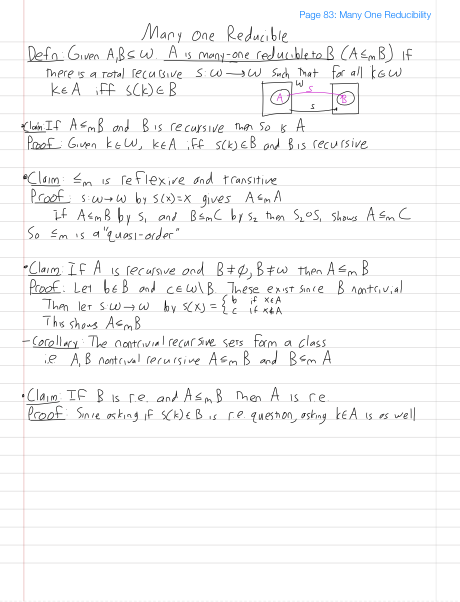 Page 83: Many One Reducibility
Many one Reducible
Defn: Given A,B⊆ω. A is many-one reducible to B (A≤mB) if
there is a total recursive s:ω→ω such that for all k∈ω
k∈A iff s(k)∈B
ω s
A B
s
•Claim If A≤mB and B is recursive then so is A
Proof: Given k∈ω, k∈A iff s(k)∈B and B is recursive
•Claim: ≤m is reflexive and transitive
Proof: s:ω→ω by s(x)=x gives A≤mA
If A≤mB by s₁ and B≤mC by s₂ then s₂∘s₁ shows A≤mC
So ≤m is a "quasi-order"
•Claim: If A is recursive and B≠∅, B≠ω then A≤mB
Proof: Let b∈B and c∈ω\B. These exist since B nontrivial
Then let s:ω→ω by s(x)={ b if x∈A
c if x∉A
This shows A≤mB
- Corollary: The nontrivial recursive sets form a class
i.e A,B nontrivial recursive A≤mB and B≤mA
•Claim: IF B is r.e. and A≤mB then A is r.e.
Proof: Since asking if s(k)∈B is r.e. question, asking k∈A is as well